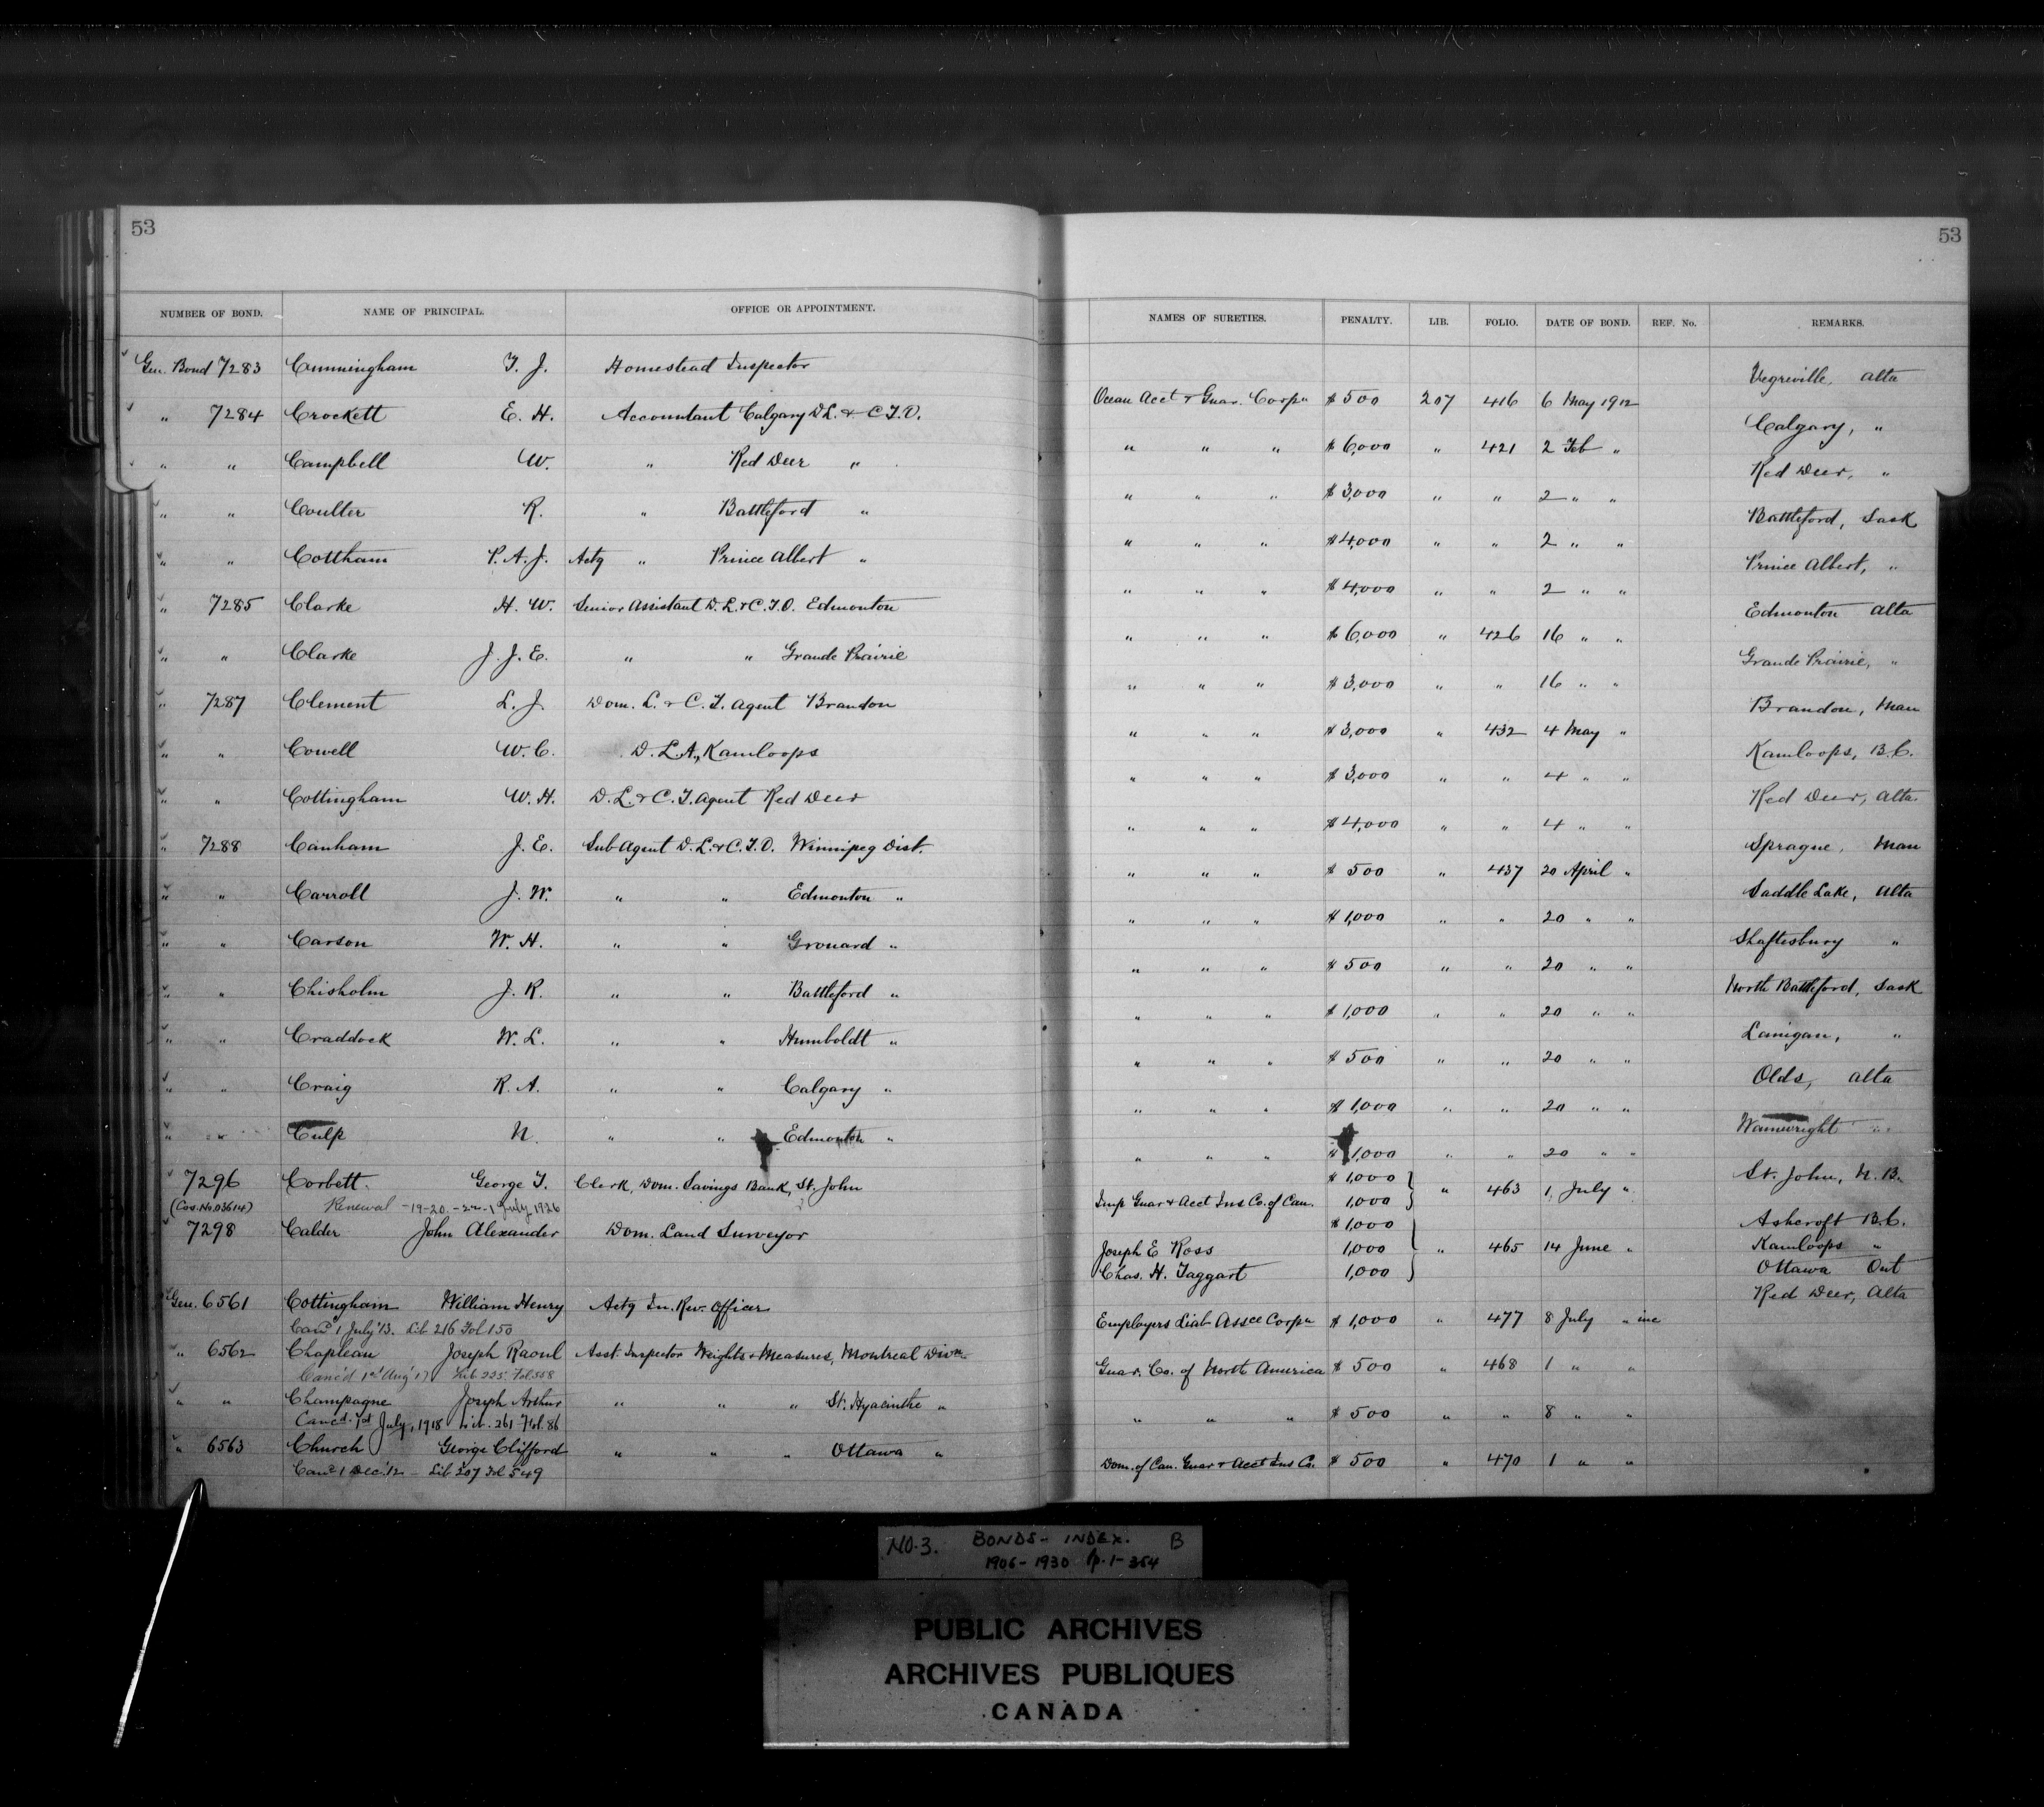 53
53
NUMBER OF BOND. NAME OF PRINCIPAL. OFFICE OR APPOINTMENT. NAMES OF SURETIES. PENALTY. LIB. FOLIO. DATE OF BOND. REF. No. REMARKS.
Gen. Bond 7283 Cunningham T. J. Homestead Inspector Ocean Acct & Guar. Corpn $500 207 416 6 May 1912 Vegreville, Alta
" 7284 Crockett E. H. Accountant Calgary D L. & C T. O. " " " $6,000 " 421 2 Feb " Calgary, "
" " Campbell W. " Red Deer " " " " $3,000 " " 2 " " Red Deer, "
" " Coulter R. " Battleford " " " " $4,000 " " 2 " " Battleford, Sask
" " Cottham P. A. J. Actg " Prince Albert " " " " $4,000 " " 2 " " Prince Albert, "
" 7285 Clarke H. W. Senior Assistant D. L. & C. T. O. Edmonton " " " $6,000 " 426 16 " " Edmonton Alta
" " Clarke J. J. E. " " Grande Prairie " " " $3,000 " " 16 " " Grande Prairie, "
" 7287 Clement L. J. Dom. L. & C. T. Agent Brandon " " " $3,000 " 432 4 May " Brandon, Man
" " Cowell W. C. D. L. A., Kamloops " " " $3,000 " " 4 " " Kamloops, B.C.
" " Cottingham W. H. D. L. & C. T. Agent Red Deer " " " $4,000 " " 4 " " Red Deer, Alta.
" 7288 Canham J. E. Sub Agent D. L. & C. T. O. Winnipeg Dist. " " " $500 " 437 20 April " Sprague, Man
" " Carroll J. W. " " Edmonton " " " " $1,000 " " 20 " " Saddle Lake, Alta
" " Carson W. H. " " Grouard " " " " $500 " " 20 " " Shaftesbury "
" " Chisholm J. R. " " Battleford " " " " $1,000 " " 20 " " North Battleford, Sask
" " Craddock W. L. " " Humboldt " " " " $500 " " 20 " " Lanigan, "
" " Craig R. A. " " Calgary " " " " $1,000 " " 20 " " Olds, Alta
" " Culp N. " " Edmonton " " " " $1,000 " " 20 " " Wainwright "
7296 Corbett. George T. Clerk, Dom. Savings Bank, St. John $1,000 St. John, N. B.
(Cas. No. 03614) Renewal -19-20 - 22 - 1 July 1926 Imp Guar & Acct Ins Co. of Can. 1,000 " 463 1, July "
7298 Calder John Alexander Dom. Land Surveyor $1,000 Ashcroft B.C.
Joseph E Ross 1,000 " 465 14 June " Kamloops "
Chas. H. Taggart 1,000 Ottawa Ont
Gen. 6561 Cottingham William Henry Actg In. Rev. Officer Employers Liab Assce Corpn $1,000 " 477 8 July " inc Red Deer, Alta
Canc'd 1 July '13. Lib 216 Fol 150
" 6562 Chapleau Joseph Raoul Asst. Inspector Weights & Measures, Montreal Divn. Guar. Co. of North America $500 " 468 1 " "
Canc'd 1st Aug '17 Lib 225 Fol 558
" " Champagne Joseph Arthur " " " St. Hyacinthe " " " " $500 " " 8 " "
Canc'd. 1st July, 1918 Lib. 261 Fol. 86
" 6563 Church George Clifford " " " Ottawa " Dom. of Can. Guar & Acct Ins Co. $500 " 470 1 " "
Canc'd 1 Dec '12 - Lib 207 Fol 549
NO. 3. BONDS - INDEX. B
1906 - 1930 p. 1 - 354
PUBLIC ARCHIVES
ARCHIVES PUBLIQUES
CANADA